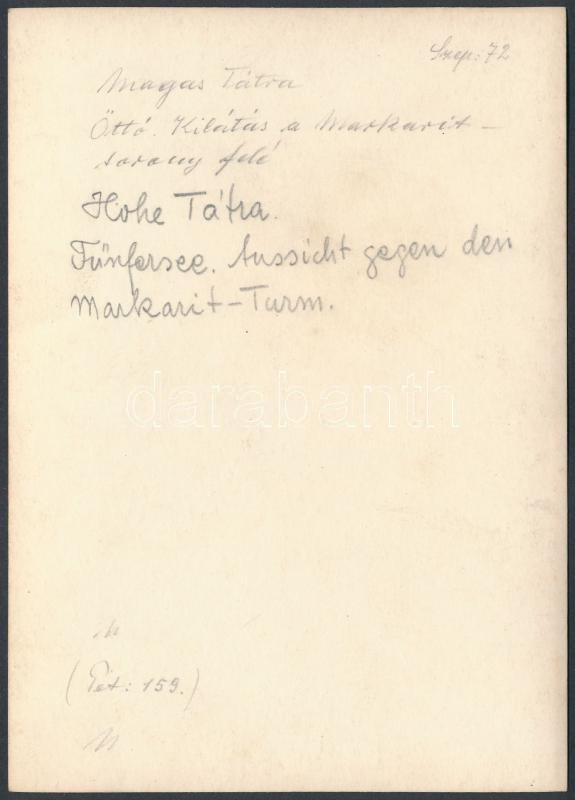 Szep: 72
Magas Tátra
Öttó. Kilátás a Markarit-
torony felé
Hohe Tátra.
Fünfersee. Aussicht gegen den
Markarit-Turm.
darabanth
M
(Pét: 159.)
M